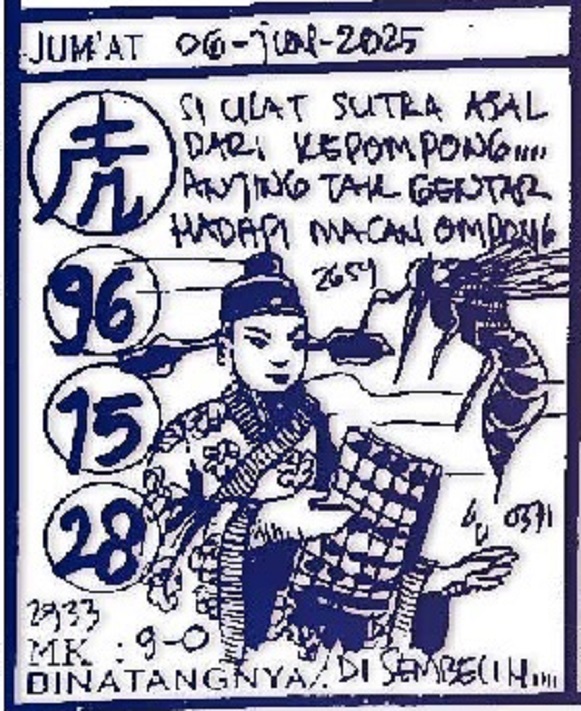 JUM'AT 06-Jun-2025
SI ULAT SUTRA ASAL
DARI KEPOMPONG....
ANJING TAK GENTAR
HADAPI MACAN OMPONG
96
2654
15
28
0371
2933
MK : 9-0
BINATANGNYA/. DI SEMBELIH....